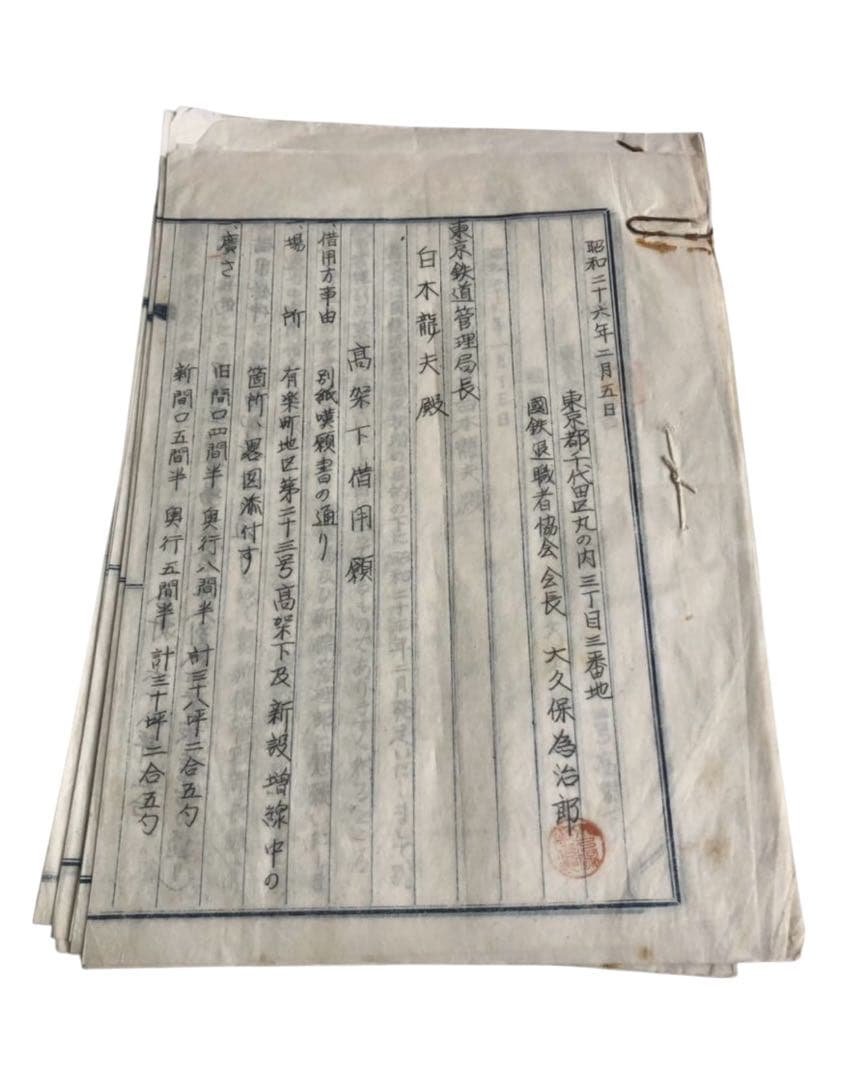 昭和二十六年二月五日
東京都千代田区丸の内三丁目三番地
國鉄退職者協会会長 大久保為治郎
東京鉄道管理局長
白木龍夫殿
高架下借用願
一、借用方事由 別紙嘆願書の通り
一、場所 有楽町地区第二十三号高架下及新設増線中の
箇所、畧図添付す
一、廣さ 旧間口四間半 奥行八間半 計三十八坪二合五勺
新間口五間半 奥行五間半 計三十坪二合五勺